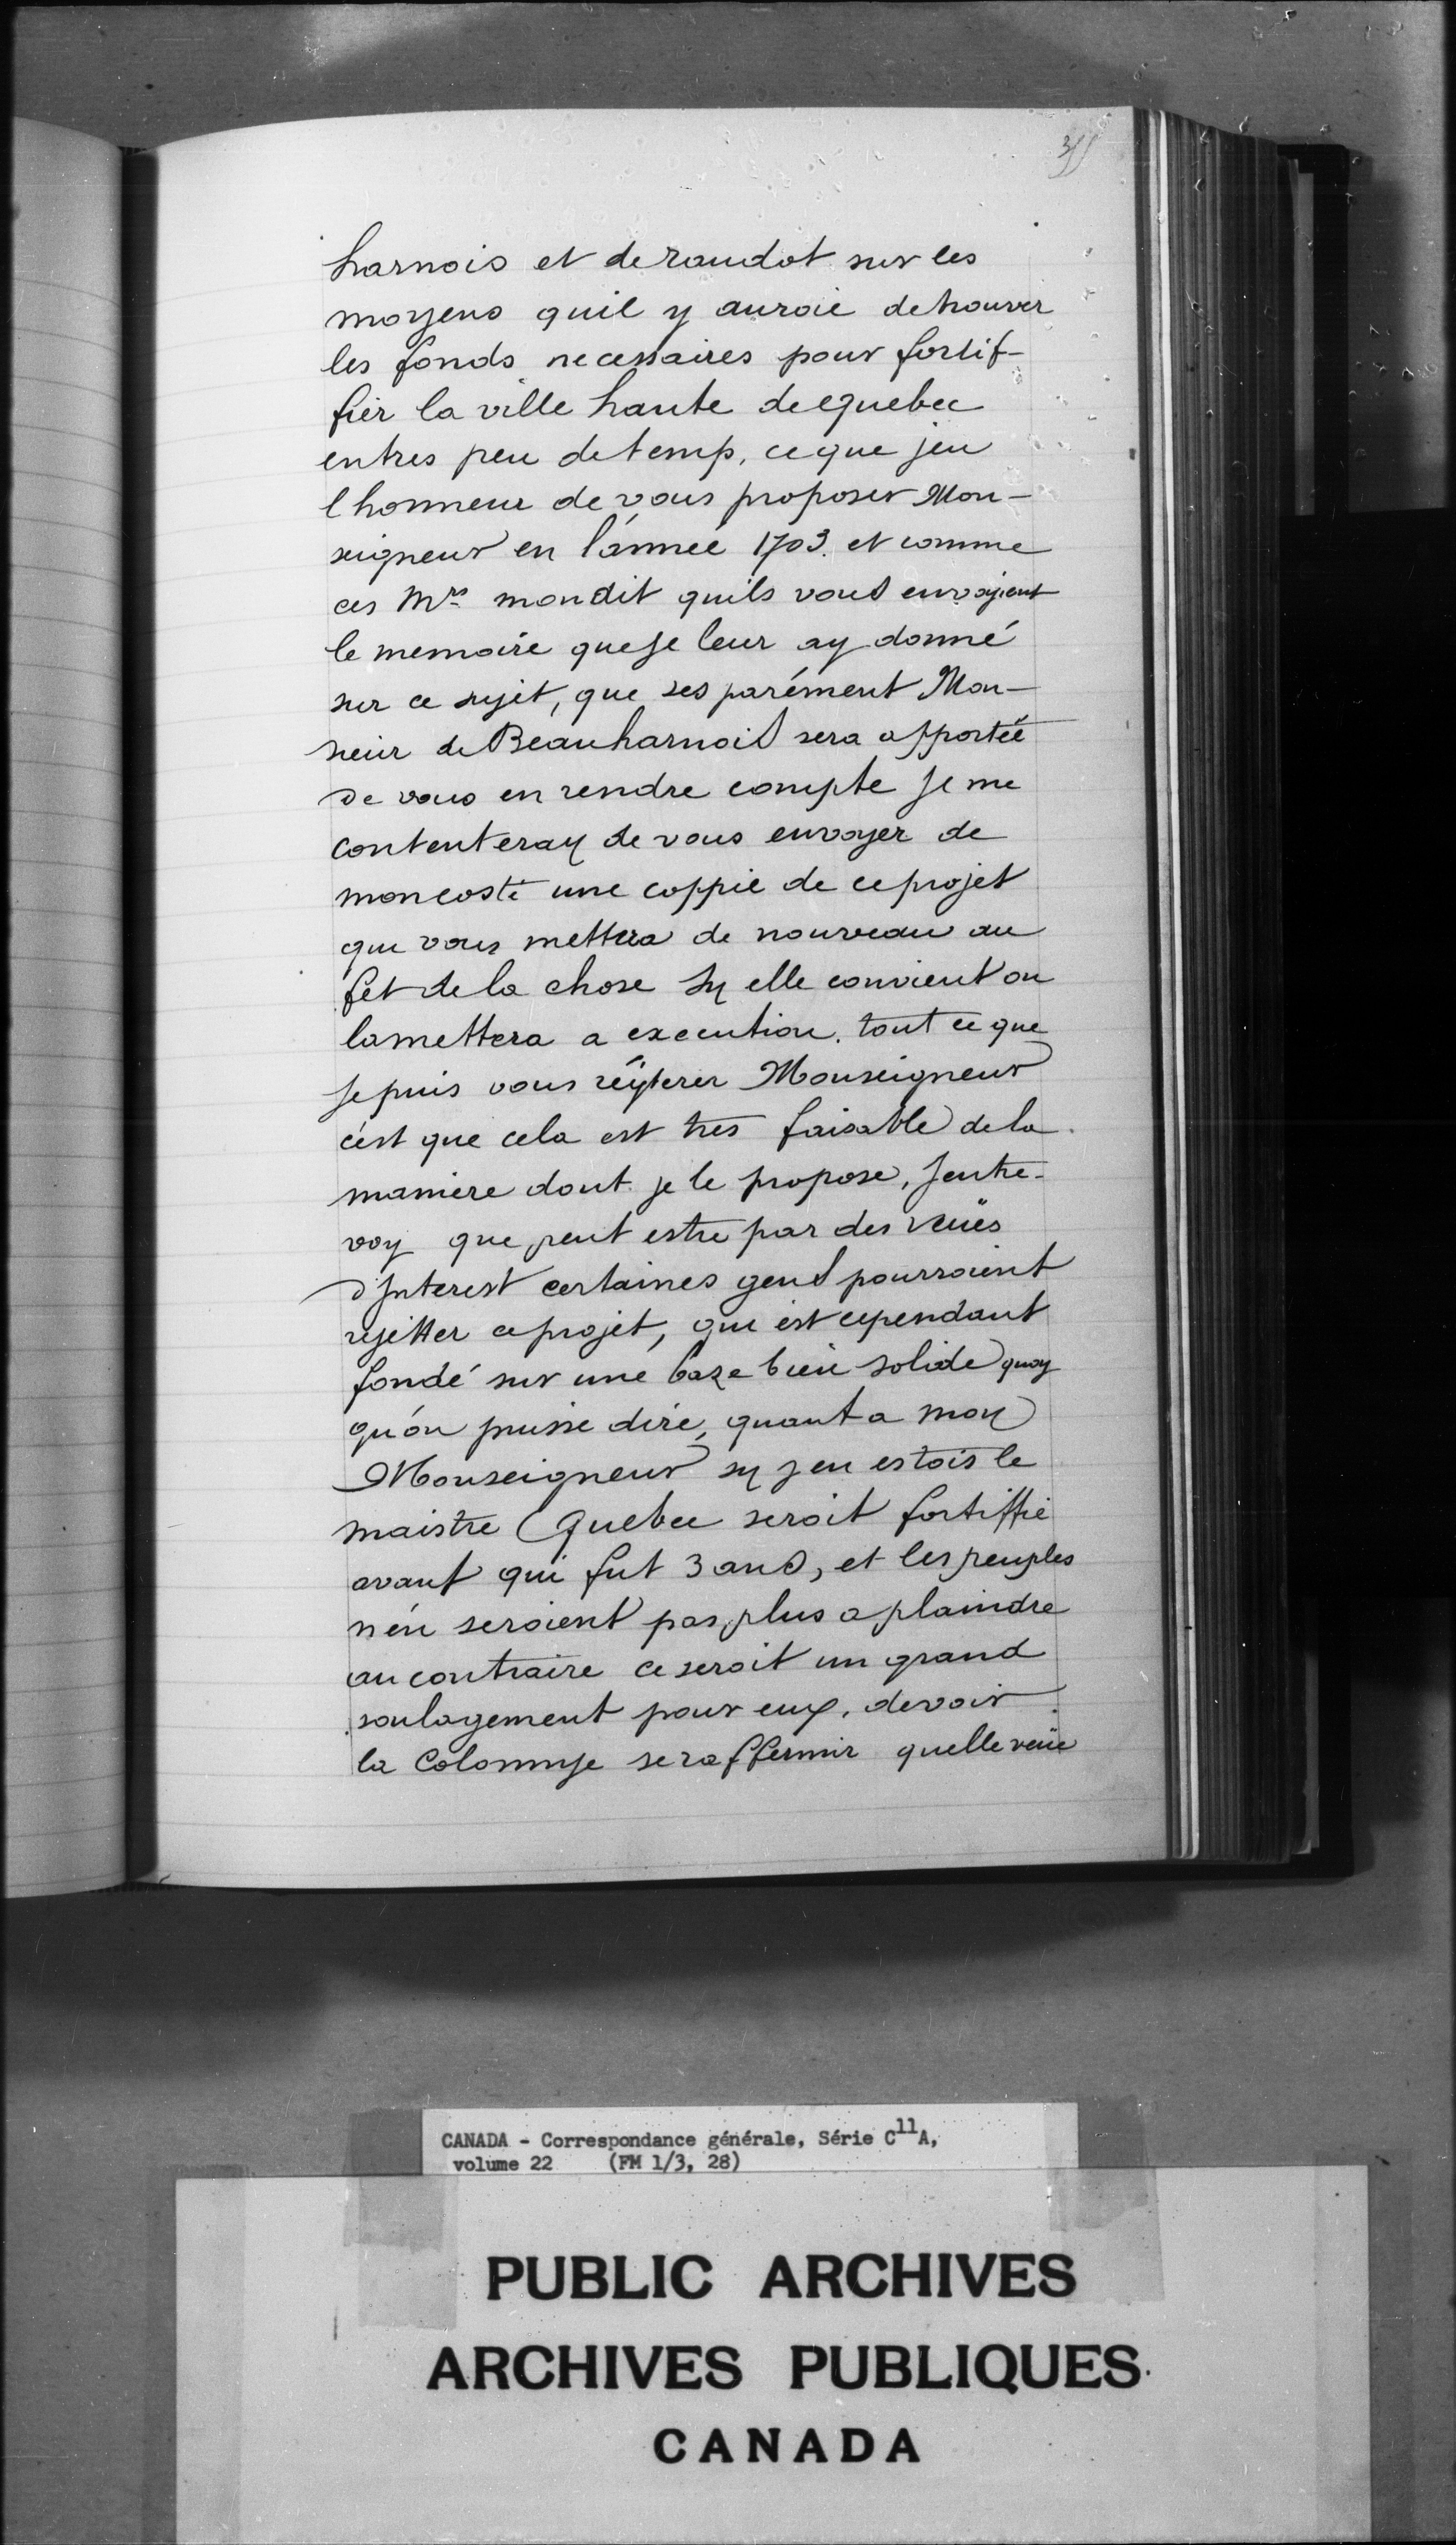 harnois et de raudot sur les
moyens quil y auroie detrouver
les fonds necessaires pour fortif-
fier la ville haute dequebec
entres peu detemp, ceque jeu
lhonneur de vous proposer Mon-
seigneur en l'année 1703. et comme
ces Mrs mondit quils vous envoyent
le memoire queje leur ay donné
sur ce sujet, que ses parément Mon-
sieur de Beauharnois sera apportéé
de vous en rendre compte Je me
contenteray de vous envoyer de
moncosté une coppie de ceprojet
qui vous mettera de nouveau au
fet dela chose Sy elle convient on
lamettera a execution. tout ce que
Jepuis vous réyterer Monseigneur
c'est que cela est tres faisable dela
maniere dont je le propose, Jentre-
voy que peut estre par des veües
d'Interest certaines gens pourroient
rejetter ceprojet, qui est cependant
fondé sur une baze bien solide quoy
qu'on puisse dire, quant a moy
Monseigneur sy jen estois le
maistre Quebec seroit fortiffié
avant qui fut 3 ans, et les peuples
n'en seroient pas plus a plaindre
au contraire ceseroit un grand
soulagement pour eux, devoir
la Colonnye seraffermir quelle veüe
CANADA - Correspondance générale, Série C11A,
volume 22 (FM 1/3, 28)
PUBLIC ARCHIVES
ARCHIVES PUBLIQUES
CANADA